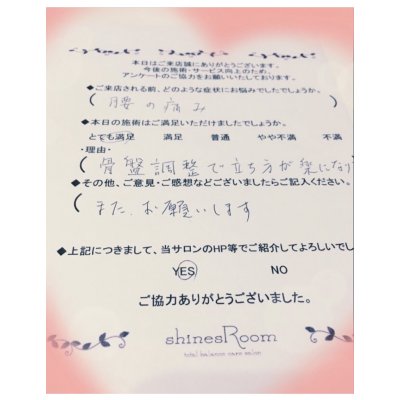 本日はご来店誠にありがとうございます。
今後の施術・サービス向上のため、
アンケートのご協力をお願いいたしております。
◆ご来店される前、どのような症状にお悩みでしたでしょうか。
(腰の痛み
◆本日の施術はご満足いただけましたでしょうか。
とても満足 満足 普通 やや不満 不満
・理由・
(骨盤調整で立ち方が楽になり
◆その他、ご意見・ご感想などございましたらご記入ください。
(また、お願いします
◆上記につきまして、当サロンのHP等でご紹介してよろしいでし
YES NO
ご協力ありがとうございました。
shinesRoom
total balance care salon